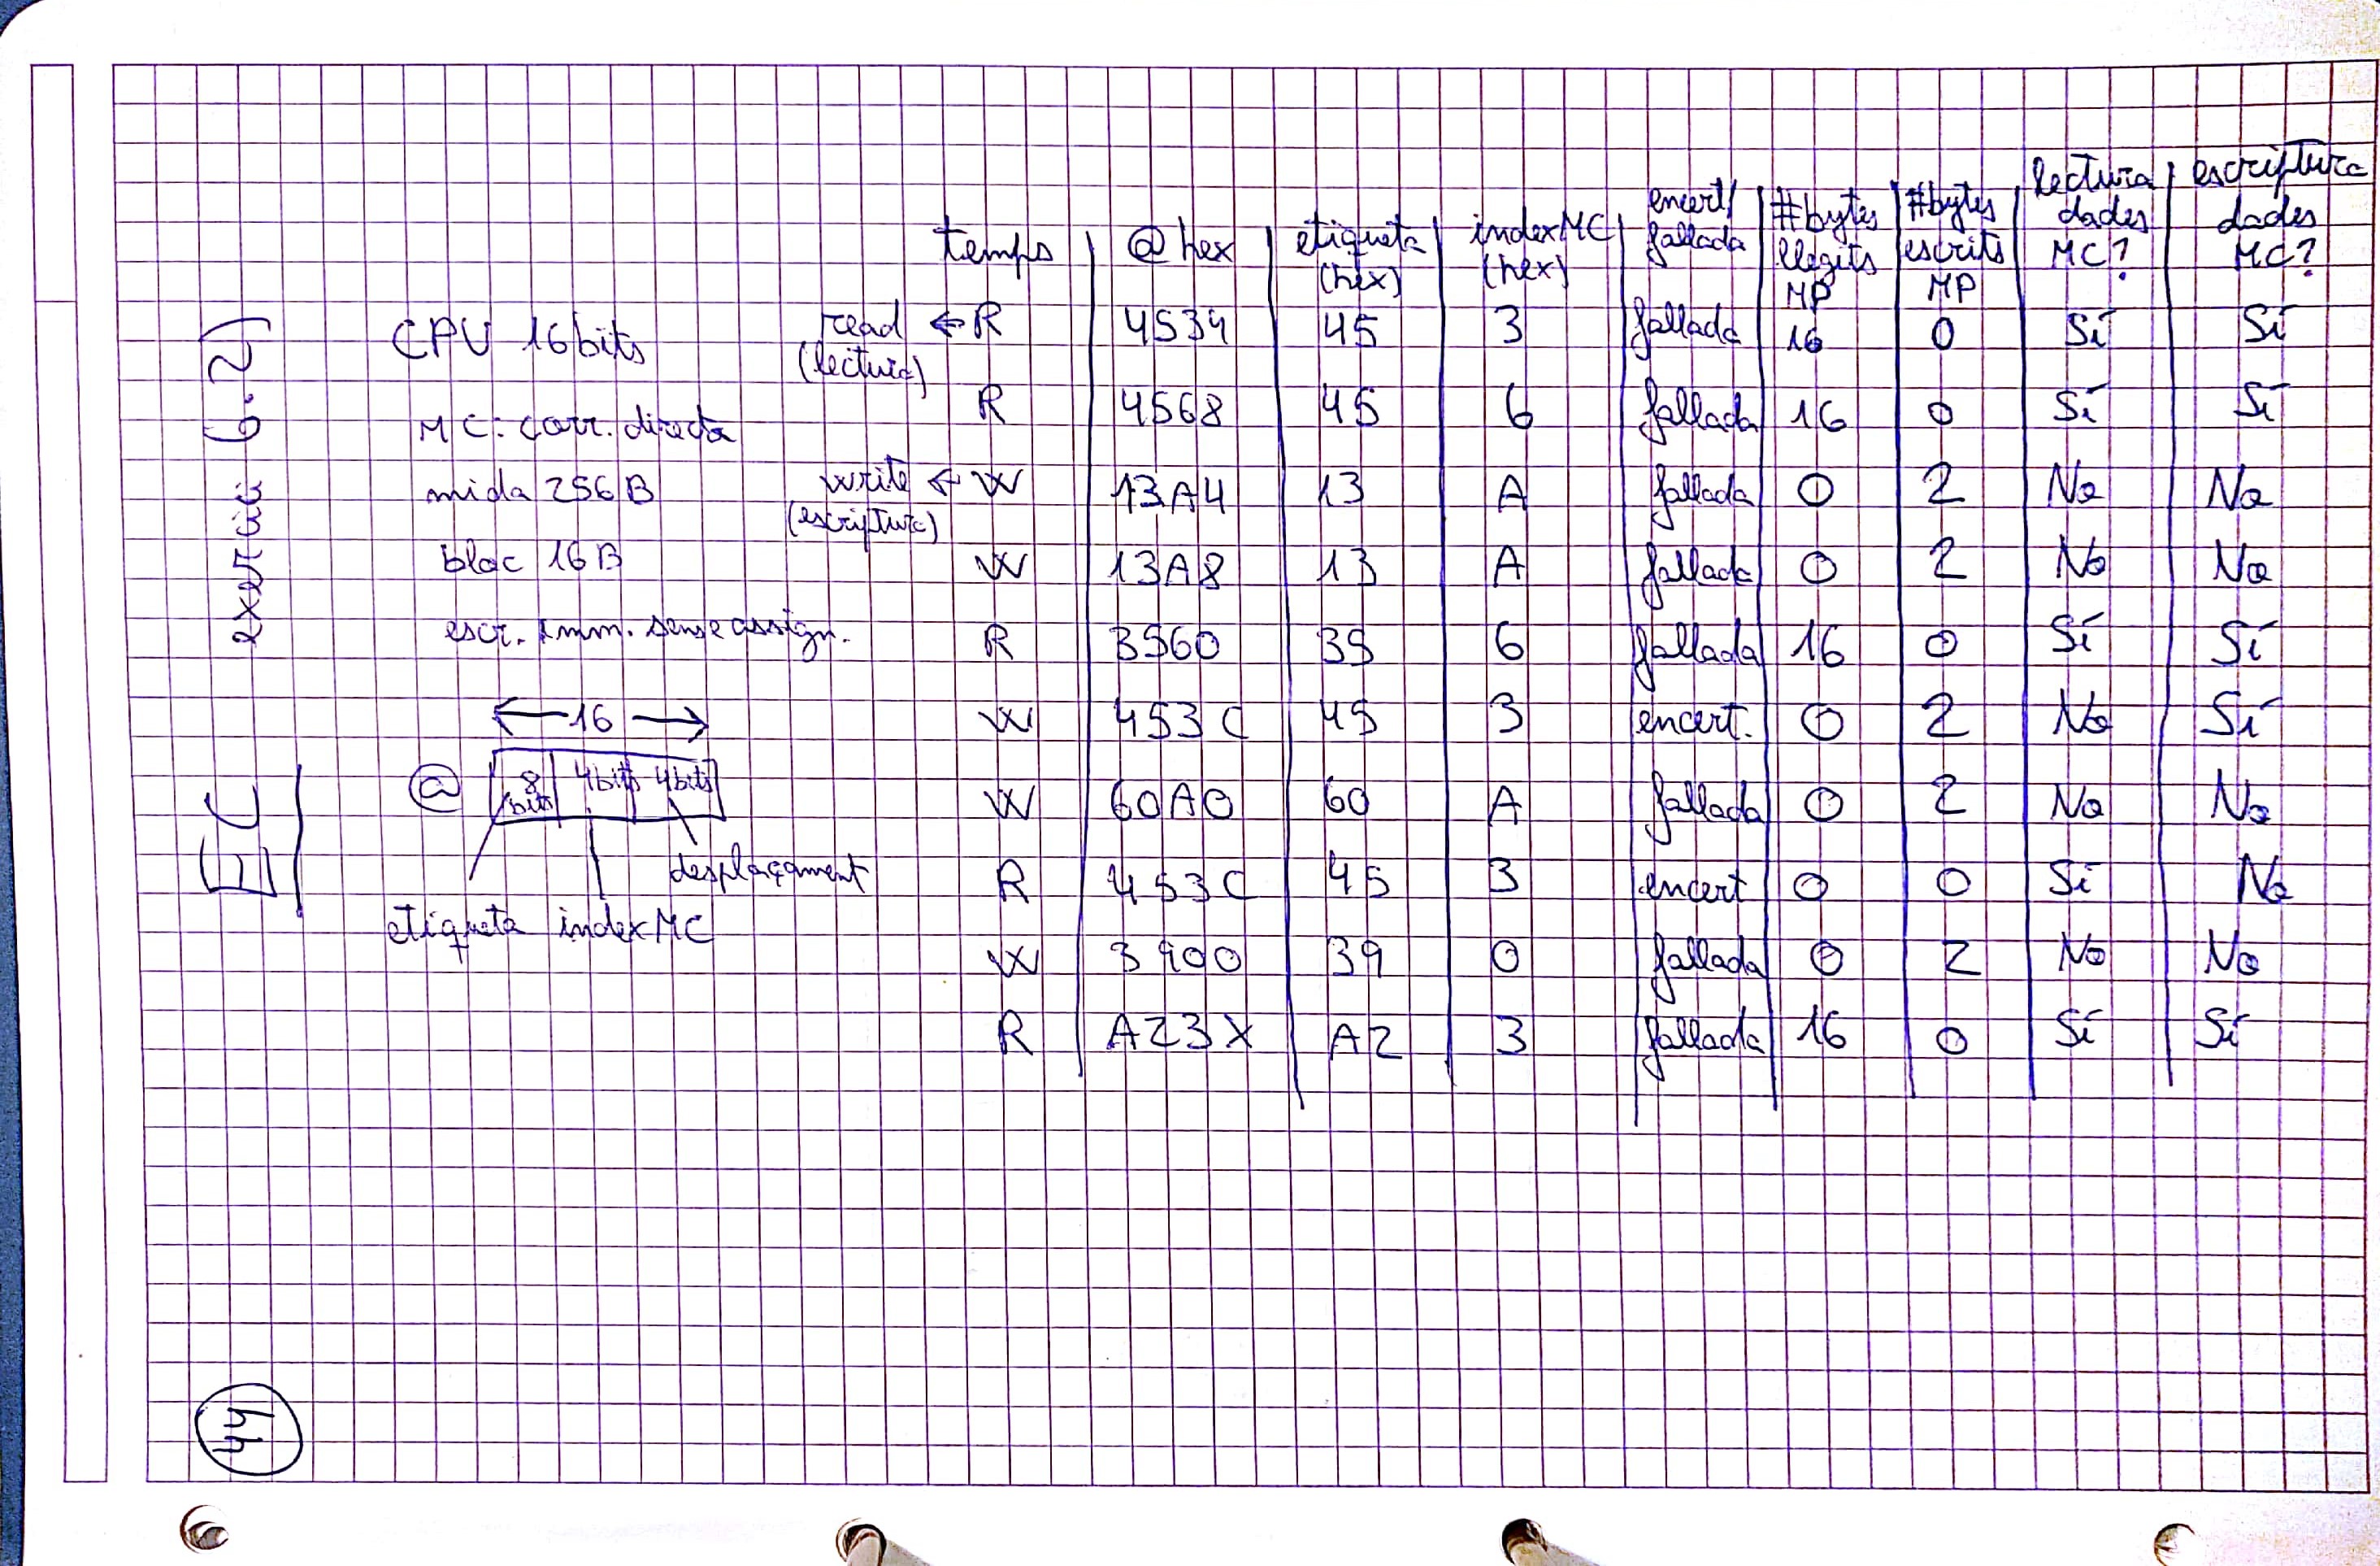 exercici 6.2)
EC
CPU 16 bits
MC: corr. directa
mida 256 B
bloc 16 B
escr. imm. sense assign.
← 16 →
@ 8 bits 4bits 4bits
desplaçament
etiqueta indexMC
read ← R
(lectura)
write ← W
(escriptura)
temps | @ hex | etiqueta (hex) | index MC (hex) | encert/ fallada | #bytes llegits MP | #bytes escrits MP | lectura dades MC? | escriptura dades MC?
R | 4534 | 45 | 3 | fallada | 16 | 0 | Sí | Sí
R | 4568 | 45 | 6 | fallada | 16 | 0 | Sí | Sí
W | 13A4 | 13 | A | fallada | 0 | 2 | No | No
W | 13A8 | 13 | A | fallada | 0 | 2 | No | No
R | 3560 | 35 | 6 | fallada | 16 | 0 | Sí | Sí
W | 453C | 45 | 3 | encert. | 0 | 2 | No | Sí
W | 60A0 | 60 | A | fallada | 0 | 2 | No | No
R | 453C | 45 | 3 | encert | 0 | 0 | Sí | No
W | 3900 | 39 | 0 | fallada | 0 | 2 | No | No
R | A23X | A2 | 3 | fallada | 16 | 0 | Sí | Sí
44